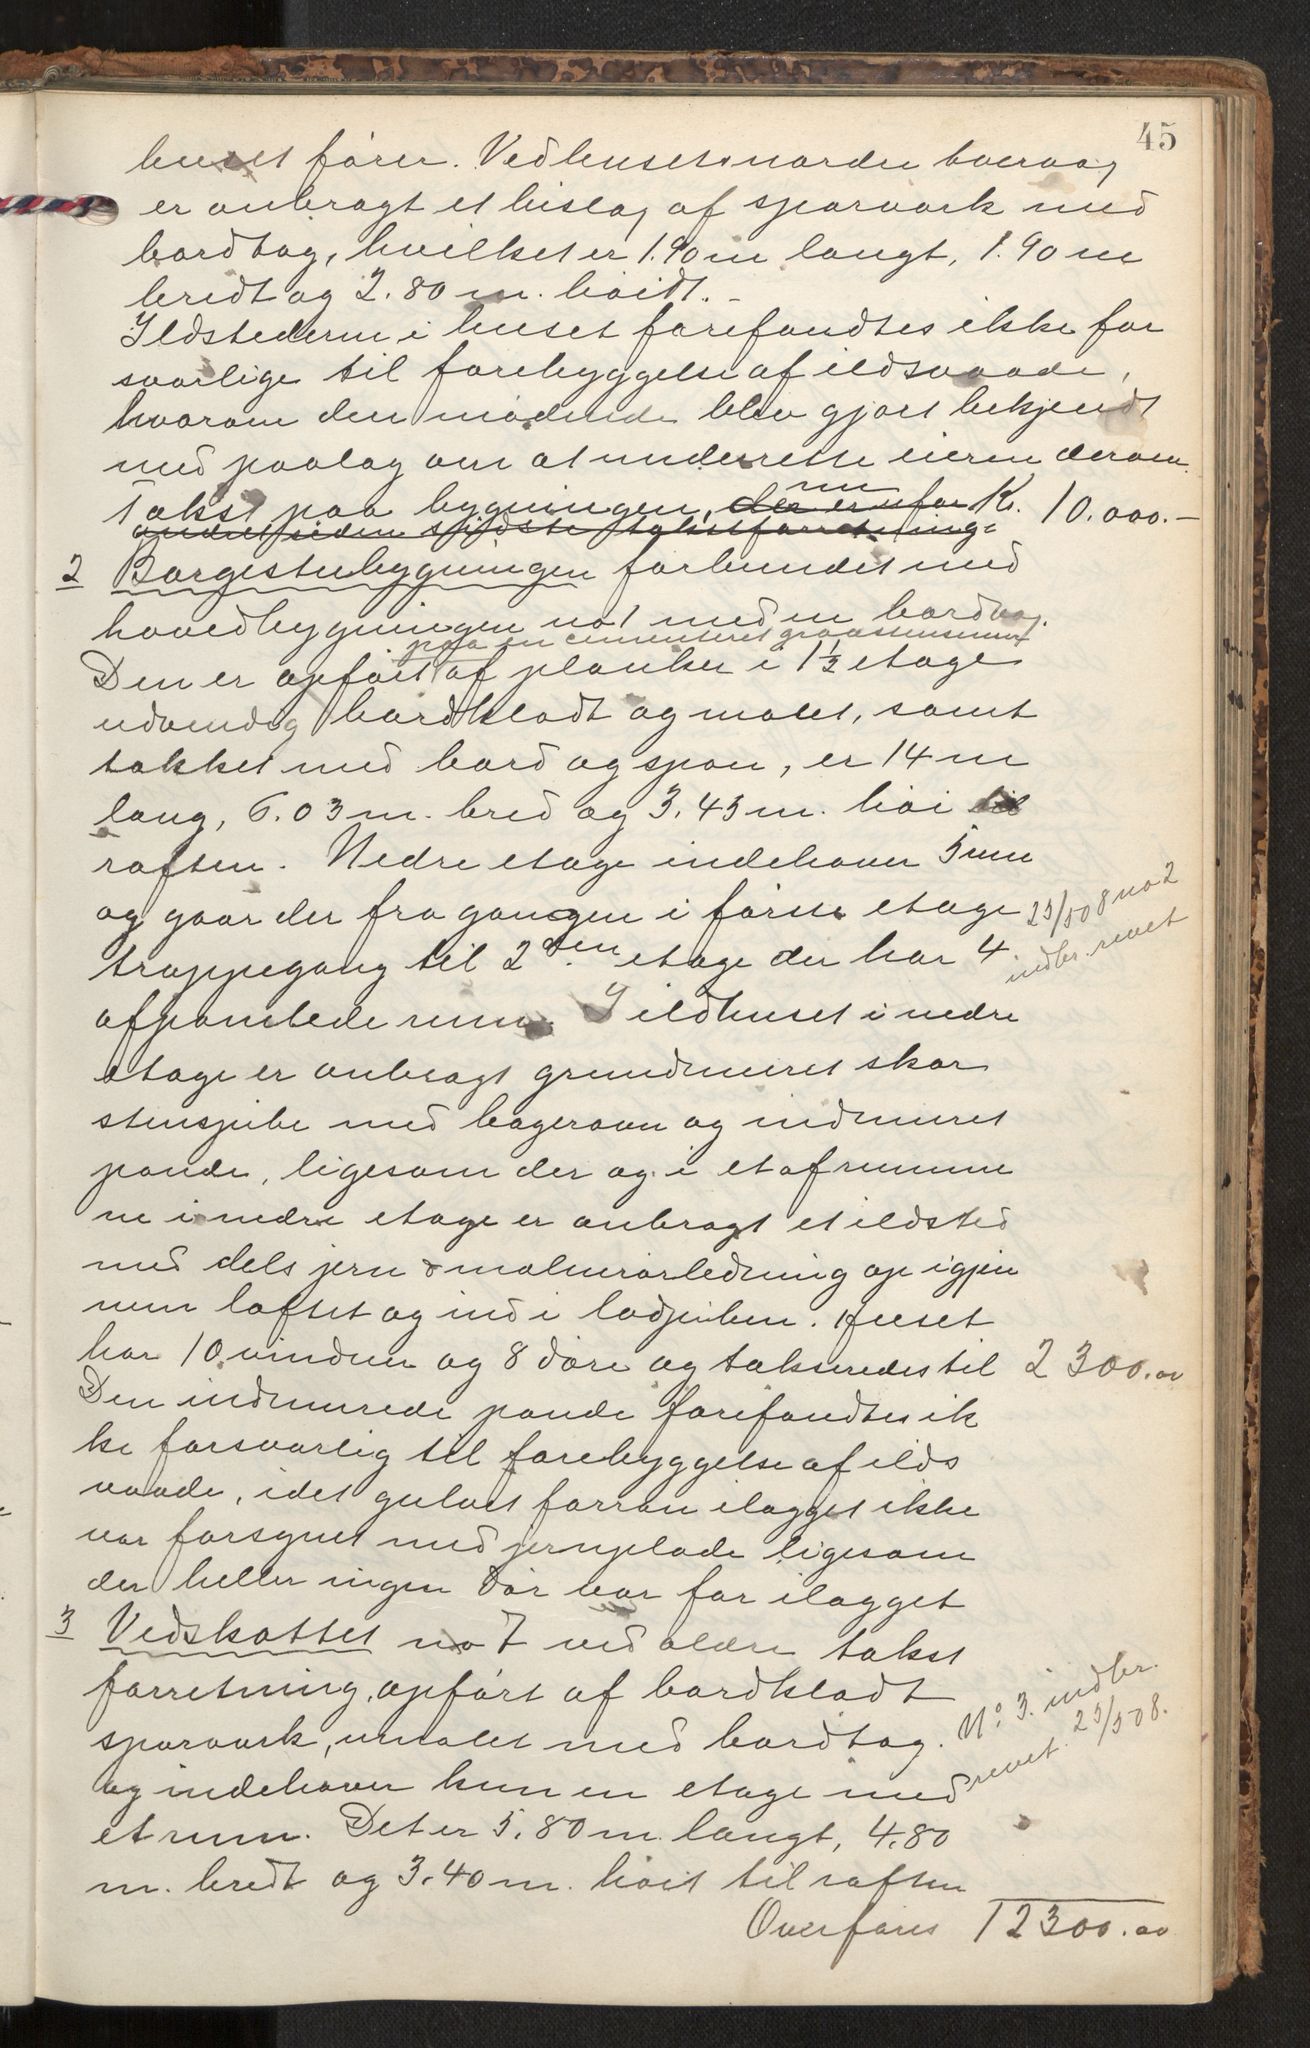 45
huset fører. Vedhusets nordre tvervæg
er anbragt et bislag af sparværk med
bordtag, hvilket er 1.90 m langt, 1.90 m
bredt og 2.80 m. høidt. –
Ildstederne i huset forefandtes ikke for
svarlige til forebyggelse af ildsvaade,
hvorom den mødende blev gjort bekjendt
med paalæg om at underrette eieren derom.
nu
Takst paa bygningen, der er ufor Kr. 10.000.–
andret siden sidste takstforretning.
2 Borgestubygningen forbundet med
hovedbygningen no 1 med en bordvæg.
paa en cementeret graastensmur
Den er opført af planker i 1½ etage
udvendig bordklædt og malet, samt
tækket med bord og spon, er 14 m
lang, 6.03 m. bred og 3.43 m. høi til
raften. Nedre etage indehaver 5 rum
og gaar der fra gangen i første etage
25/5 08 no 2
trappegang til 2den etage der har 4
indbr. revet
afpanelede rum. I ildhuset i nedre
etage er anbragt grundmuret skor
stenspibe med bagerovn og indmuret
pande, ligesom der og i et af rumme
ne i nedre etage er anbragt et ildsted
med dels jern & malmrørledning op igjen
nem loftet og ind i lodpiben. Huset
har 10 vinduer og 8 døre og takseredes til 2 300.00
Den indmurede pande forefandtes ik
ke forsvarlig til forebyggelse af ilds
vaade, idet gulvet foran ilægget ikke
var forsynet med jernplade ligesom
der heller ingen dør var for ilægget
3 Vedskottet no 7 ved ældre takst
forretning, opført af bordklædt
sparværk, umalet med bordtag.
No 3. indbr.
revet 25/5 08.
og indehaver kun en etage med
et rum. Det er 5.80 m. langt, 4.80
m. bredt og 3.40 m. høit til raften
Overføres 12300.00